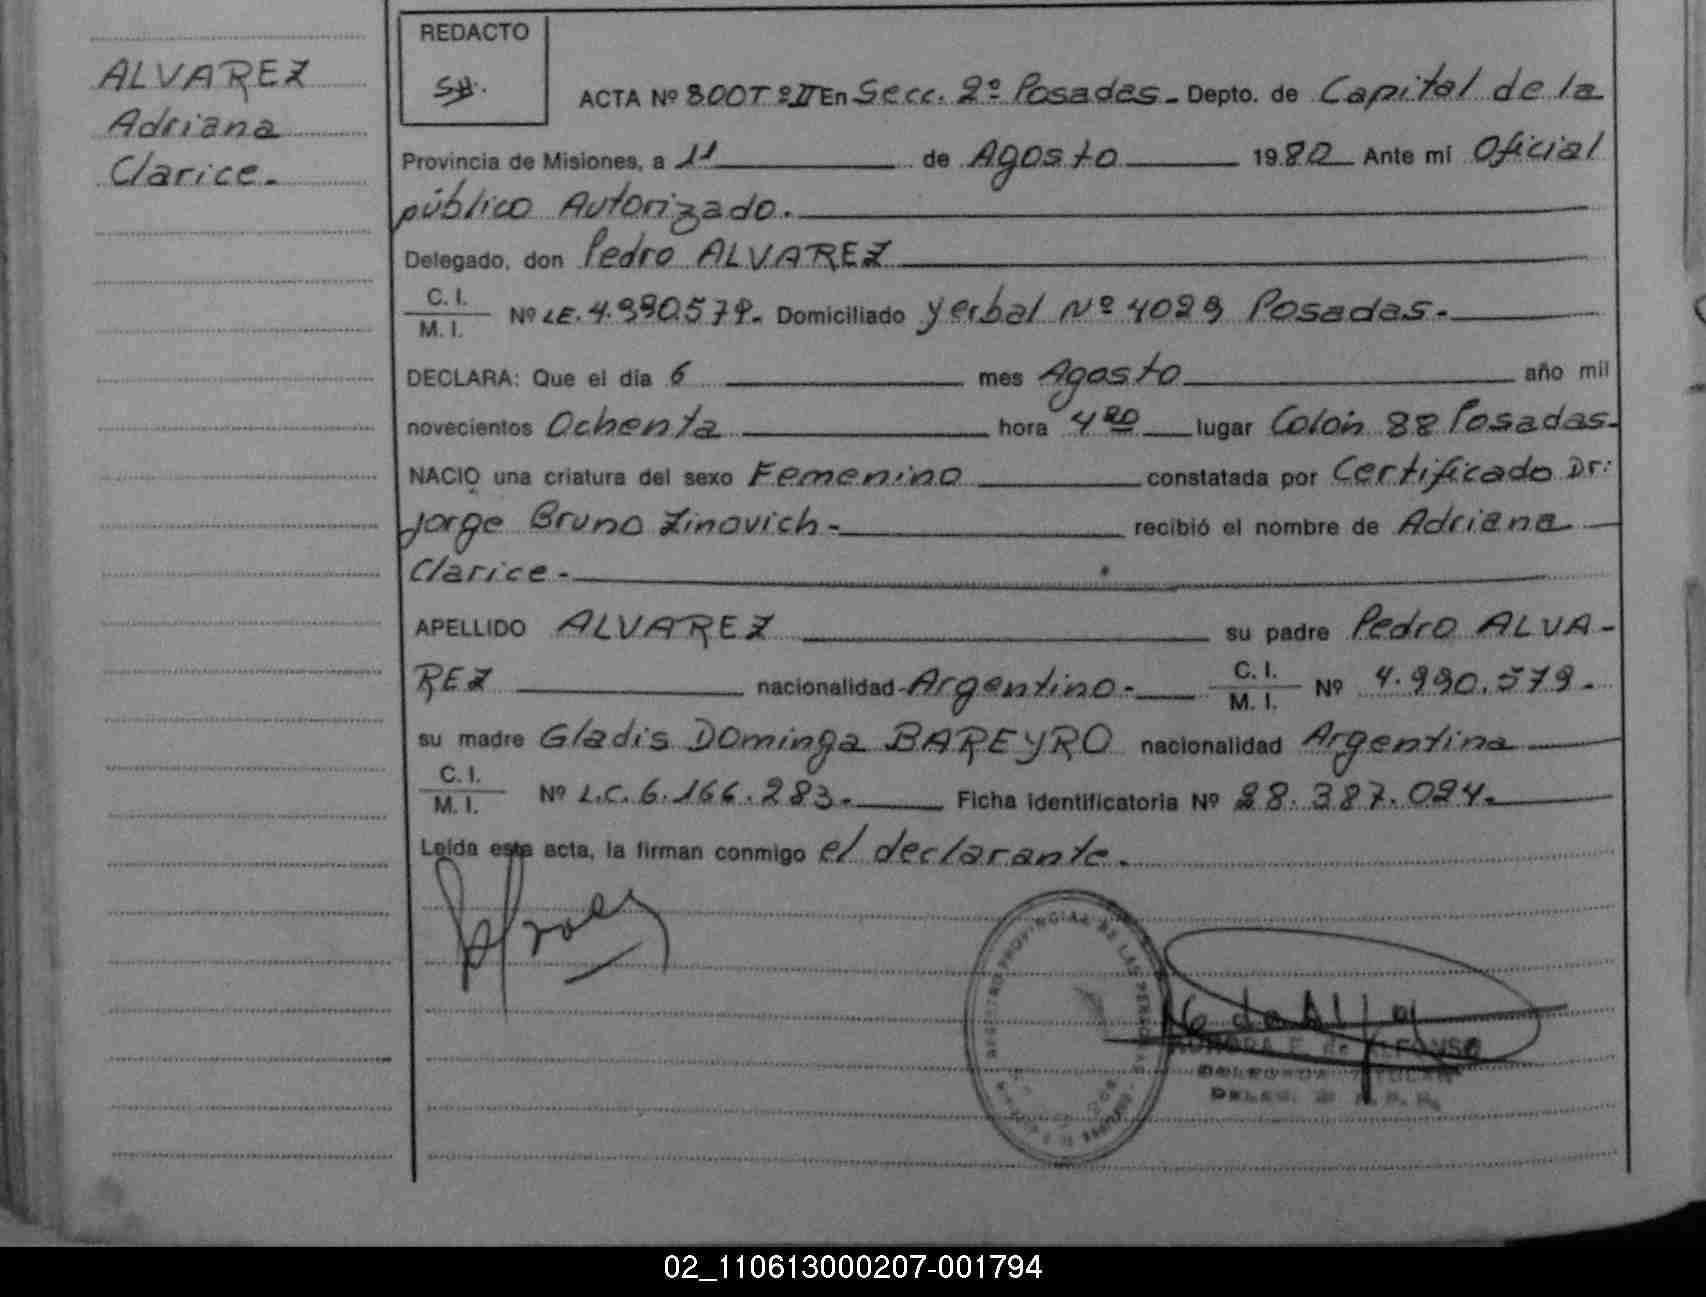 ALVAREZ
Adriana
Clarice.
REDACTO
ACTA Nº 800 Tº II En Secc. 2º Posadas. Depto. de Capital de la
Provincia de Misiones, a 11 de Agosto 1980 Ante mi Oficial
público Autorizado.
Delegado, don Pedro ALVAREZ
C. I.
M. I. Nº LE. 4.990.579. Domiciliado Yerbal Nº 4029 Posadas.
DECLARA: Que el día 6 mes Agosto año mil
novecientos Ochenta hora 4 20 lugar Colón 88 Posadas.
NACIO una criatura del sexo Femenino constatada por Certificado Dr:
Jorge Bruno Zinovich. recibió el nombre de Adriana
Clarice.
APELLIDO ALVAREZ su padre Pedro ALVA-
REZ nacionalidad Argentino. C. I. M. I. Nº 4.990.579.
su madre Gladis Dominga BAREYRO nacionalidad Argentina
C. I.
M. I. Nº L.C. 6.166.283. Ficha identificatoria Nº 28.387.024.
Leída esta acta, la firman conmigo el declarante.
REGISTRO PROVINCIAL DE LAS PERSONAS
AURORA E. de ALFONSO
DELEGADA TITULAR
02_110613000207-001794